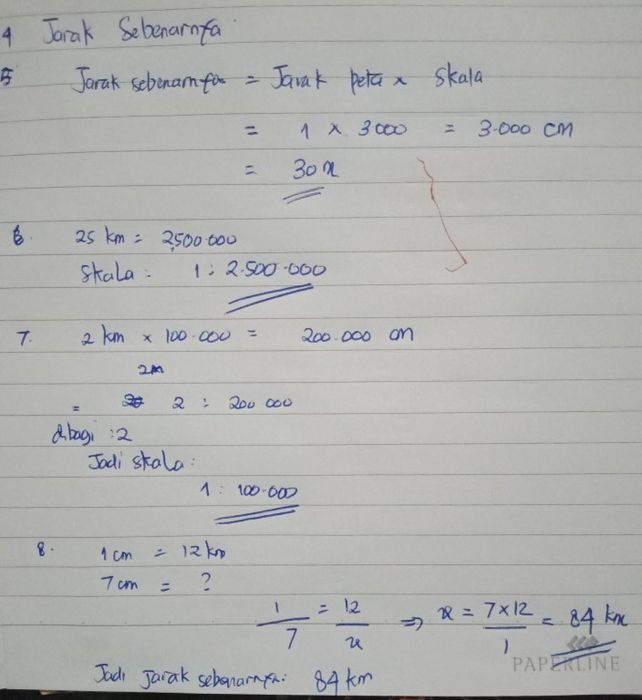 4 Jarak Sebenarnya
5 Jarak sebenarnya = Jarak peta x Skala
= 1 x 3000 = 3.000 cm
= 30
6. 25 km = 2,500.000
Skala : 1 : 2.500.000
7. 2 km x 100.000 = 200.000 cm
2m
= 2 : 200 000
dibagi :2
Jadi skala :
1 : 100.000
8. 1 cm = 12 km
7 cm = ?
1/7 = 12/x => x = 7x12/1 = 84 km
Jadi Jarak sebenarnya : 84 km
PAPERLINE